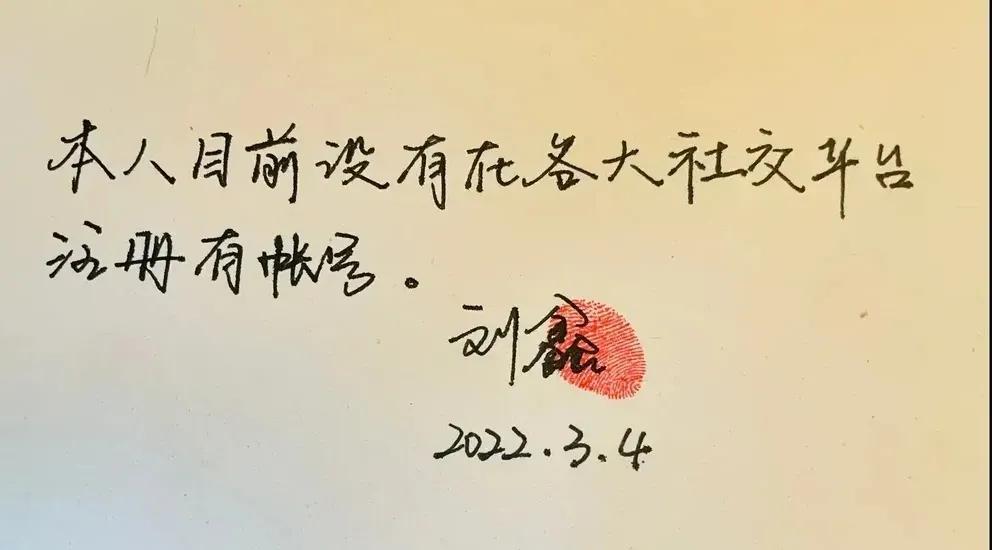 本人目前没有在各大社交平台
注册有帐号。
刘鑫
2022.3.4